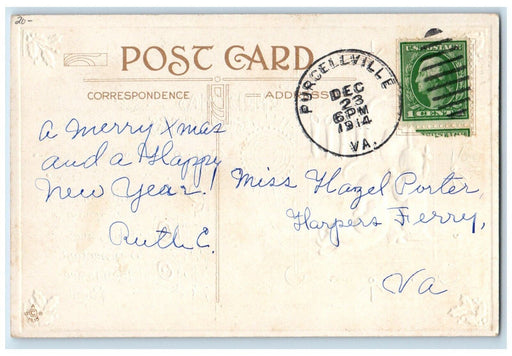 20-
POST CARD
CORRESPONDENCE
ADDRESS
PURCELLVILLE
DEC
23
6 PM
1914
VA.
U.S. POSTAGE
1 CENT 1
A Merry Xmas
and a Happy
New Year!
Ruth C.
Miss Hazel Porter
Harpers Ferry,
Va